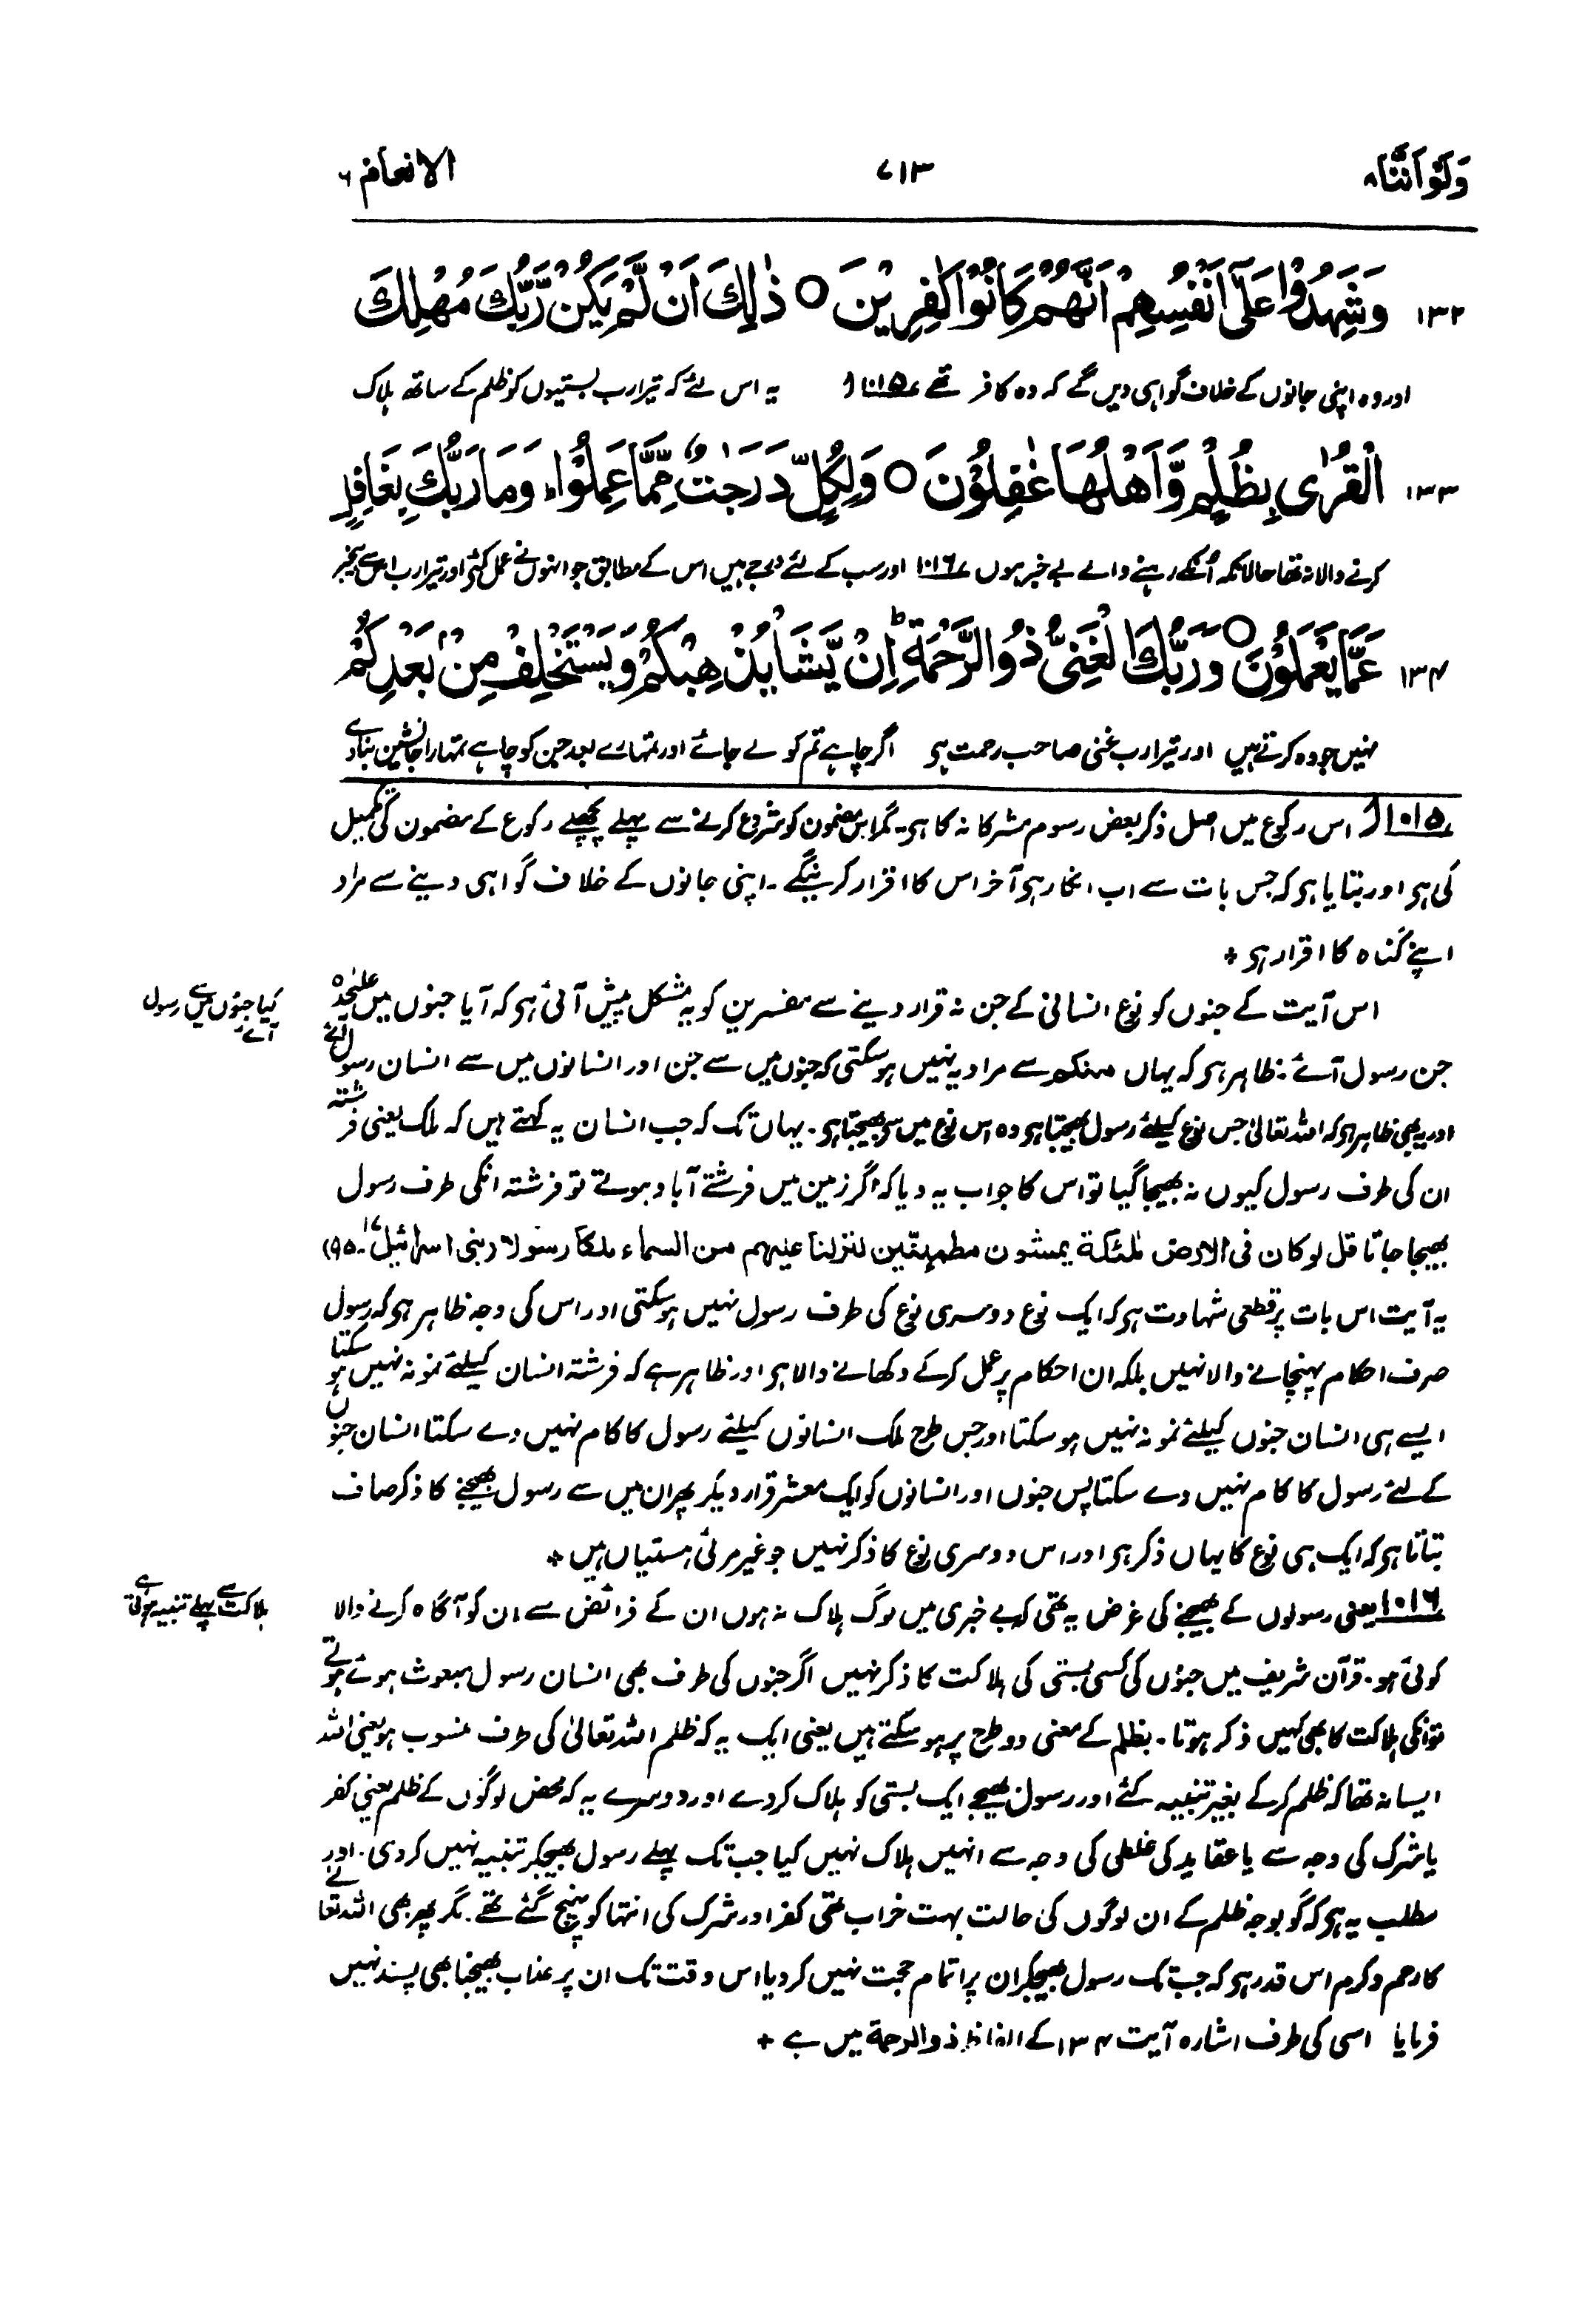 وَلَوْ اَنَّنَا ۸
۷۱۳
الانعام ۶
۱۳۲ وَشَهِدُوْا عَلٰٓى اَنْفُسِهِمْ اَنَّهُمْ كَانُوْا كٰفِرِيْنَ ○ ذٰلِكَ اَنْ لَّمْ يَكُنْ رَّبُّكَ مُهْلِكَ
اور وہ اپنی جانوں کے خلاف گواہی دیں گے کہ وہ کافر تھے ۱۰۱۵؂ یہ اس لئے کہ تیرا رب بستیوں کو ظلم کے ساتھ ہلاک
۱۳۳ الْقُرٰى بِظُلْمٍ وَّاَهْلُهَا غٰفِلُوْنَ ○ وَلِكُلٍّ دَرَجٰتٌ مِّمَّا عَمِلُوْا ۭ وَمَا رَبُّكَ بِغَافِلٍ
کرنے والا نہ تھا حالانکہ اُنکے رہنے والے بے خبر ہوں ۱۰۱۶؂ اور سب کے لئے درجے ہیں اس کے مطابق جو انہوں نے عمل کئے اور تیرا رب اس سے بیخبر
۱۳۴ عَمَّا يَعْمَلُوْنَ ○ وَرَبُّكَ الْغَنِىُّ ذُو الرَّحْمَةِ ۭ اِنْ يَّشَاْ يُذْهِبْكُمْ وَيَسْتَخْلِفْ مِنْۢ بَعْدِكُمْ
نہیں جو وہ کرتے ہیں اور تیرا رب غنی صاحب رحمت ہی اگر چاہے تم کو لے جائے اور تمہارے بعد جن کو چاہے تمہارا جانشین بنادے
۱۰۱۵؂ اس رکوع میں اصل ذکر بعض رسوم مشرکانہ کا ہی۔ مگر اس مضمون کو شروع کرنے سے پہلے پچھلے رکوع کے مضمون کی تکمیل
کی ہی اور بتایا ہی کہ جس بات سے اب انکار ہی آخر اس کا اقرار کرینگے۔ اپنی جانوں کے خلاف گواہی دینے سے مراد
اپنے گناہ کا اقرار ہی +
کیا جنوں میں سے رسول آئے
اس آیت کے جنوں کو نوع انسانی کے جن نہ قرار دینے سے مفسرین کو یہ مشکل پیش آئی ہی کہ آیا جنوں میں علیحدہ
جن رسول آئے۔ ظاہر ہی کہ یہاں منکم سے مراد یہ نہیں ہو سکتی کہ جنوں میں سے جن اور انسانوں میں سے انسان رسول آئے
اور یہ بھی ظاہر ہی کہ اللہ تعالیٰ جس نوع کیلئے رسول بھیجتا ہی وہ اس نوع میں سے بھیجتا ہی۔ یہاں تک کہ جب انسان یہ کہتے ہیں کہ ملک یعنی فرشتہ
ان کی طرف رسول کیوں نہ بھیجا گیا تو اس کا جواب یہ دیا کہ اگر زمین میں فرشتے آباد ہوتے تو فرشتہ انکی طرف رسول
بھیجا جاتا قل لو کان فی الارض ملٰئکة یمشون مطمئنین لنزلنا علیهم من السماء ملکا رسولا (بنی اسرائیل ۱۷۔۹۵)
یہ آیت اس بات پر قطعی شہادت ہی کہ ایک نوع دوسری نوع کی طرف رسول نہیں ہو سکتی اور اس کی وجہ ظاہر ہی کہ رسول
صرف احکام پہنچانے والا نہیں بلکہ ان احکام پر عمل کرکے دکھانے والا ہی اور ظاہر ہے کہ فرشتہ انسان کیلئے نمونہ نہیں ہو سکتا
ایسے ہی انسان جنوں کیلئے نمونہ نہیں ہو سکتا اور جس طرح ملک انسانوں کیلئے رسول کا کام نہیں دے سکتا انسان جنوں
کے لئے رسول کا کام نہیں دے سکتا پس جنوں اور انسانوں کو ایک معشر قرار دیکر پھر ان میں سے رسول بھیجنے کا ذکر صاف
بتاتا ہی کہ ایک ہی نوع کا یہاں ذکر ہی اور اس دوسری نوع کا ذکر نہیں جو غیر مرئی ہستیاں ہیں +
ہلاکت سے پہلے تنبیہ ہوتی ہے
۱۰۱۶؂ یعنی رسولوں کے بھیجنے کی غرض یہ تھی کہ بے خبری میں لوگ ہلاک نہ ہوں ان کے فرائض سے ان کو آگاہ کرنے والا
کوئی ہو۔ قرآن شریف میں جنوں کی کسی بستی کی ہلاکت کا ذکر نہیں اگر جنوں کی طرف بھی انسان رسول مبعوث ہوئے ہوتے
تو انکی ہلاکت کا بھی کہیں ذکر ہوتا۔ بظلم کے معنی دو طرح پر ہو سکتے ہیں یعنی ایک یہ کہ ظلم اللہ تعالیٰ کی طرف منسوب ہو یعنی اللہ
ایسا نہ تھا کہ ظلم کرکے بغیر تنبیہ کئے اور رسول بھیجے ایک بستی کو ہلاک کردے اور دوسرے یہ کہ محض لوگوں کے ظلم یعنی کفر
یا شرک کی وجہ سے یا عقاید کی غلطی کی وجہ سے انہیں ہلاک نہیں کیا جب تک پہلے رسول بھیجکر تنبیہ نہیں کردی۔ اور
مطلب یہ ہی کہ گو بوجہ ظلم کے ان لوگوں کی حالت بہت خراب تھی کفر اور شرک کی انتہا کو پہنچ گئے تھے۔ مگر پھر بھی اللہ تعالےٰ
کا رحم و کرم اس قدر ہی کہ جب تک رسول بھیجکر ان پر اتمام حجت نہیں کردیا اس وقت تک ان پر عذاب بھیجنا بھی پسند نہیں
فرمایا اسی کی طرف اشارہ آیت ۱۳۴ کے الفاظ ذو الرحمة میں ہے +